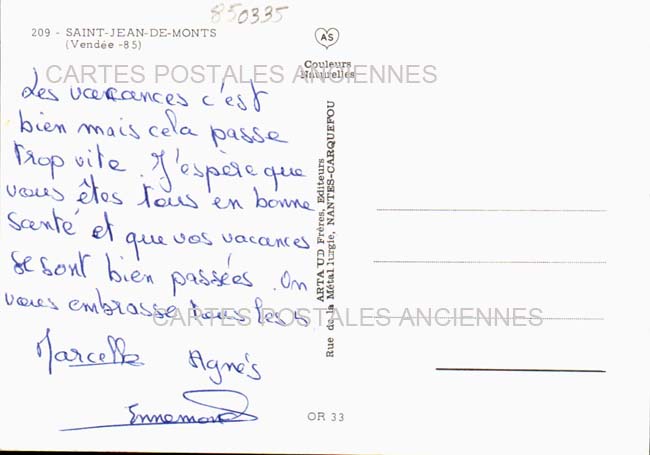 850335
209 - SAINT-JEAN-DE-MONTS
(Vendée - 85)
AS
Couleurs
Naturelles
CARTES POSTALES ANCIENNES
Les vacances c'est
bien mais cela passe
trop vite. J'espère que
vous êtes tous en bonne
santé et que vos vacances
se sont bien passées. On
vous embrasse tous les 5
Marcelle Agnés
Ennemond
CARTES POSTALES ANCIENNES
ARTAUD Frères, Editeurs
Rue de la Métallurgie, NANTES-CARQUEFOU
OR 33